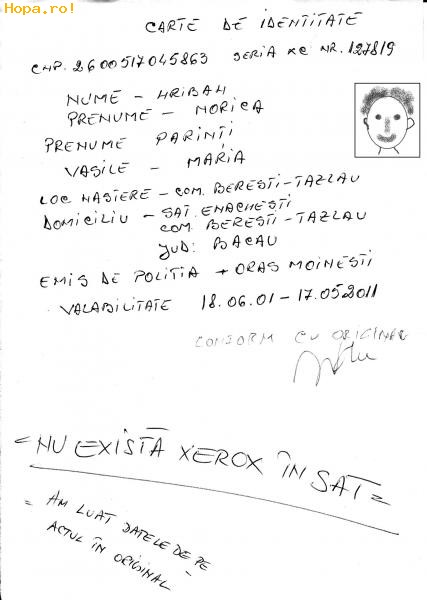 Hopa.ro!
CARTE DE IDENTITATE
CNP. 2600517045863 SERIA XC NR. 127819
NUME - HRIBAH
PRENUME - NORICA
PRENUME PARINȚI
VASILE - MARIA
LOC NASTERE - COM. BERESTI-TAZLAU
DOMICILIU - SAT. ENACHESTI
COM. BERESTI-TAZLAU
JUD: BACAU
EMIS DE POLITIA ORAS MOINESTI
VALABILITATE 18.06.01 - 17.052011
CONFORM CU ORIGINAL
= NU EXISTĂ XEROX ÎN SAT =
= AM LUAT DATELE DE PE
ACTUL ÎN ORIGINAL